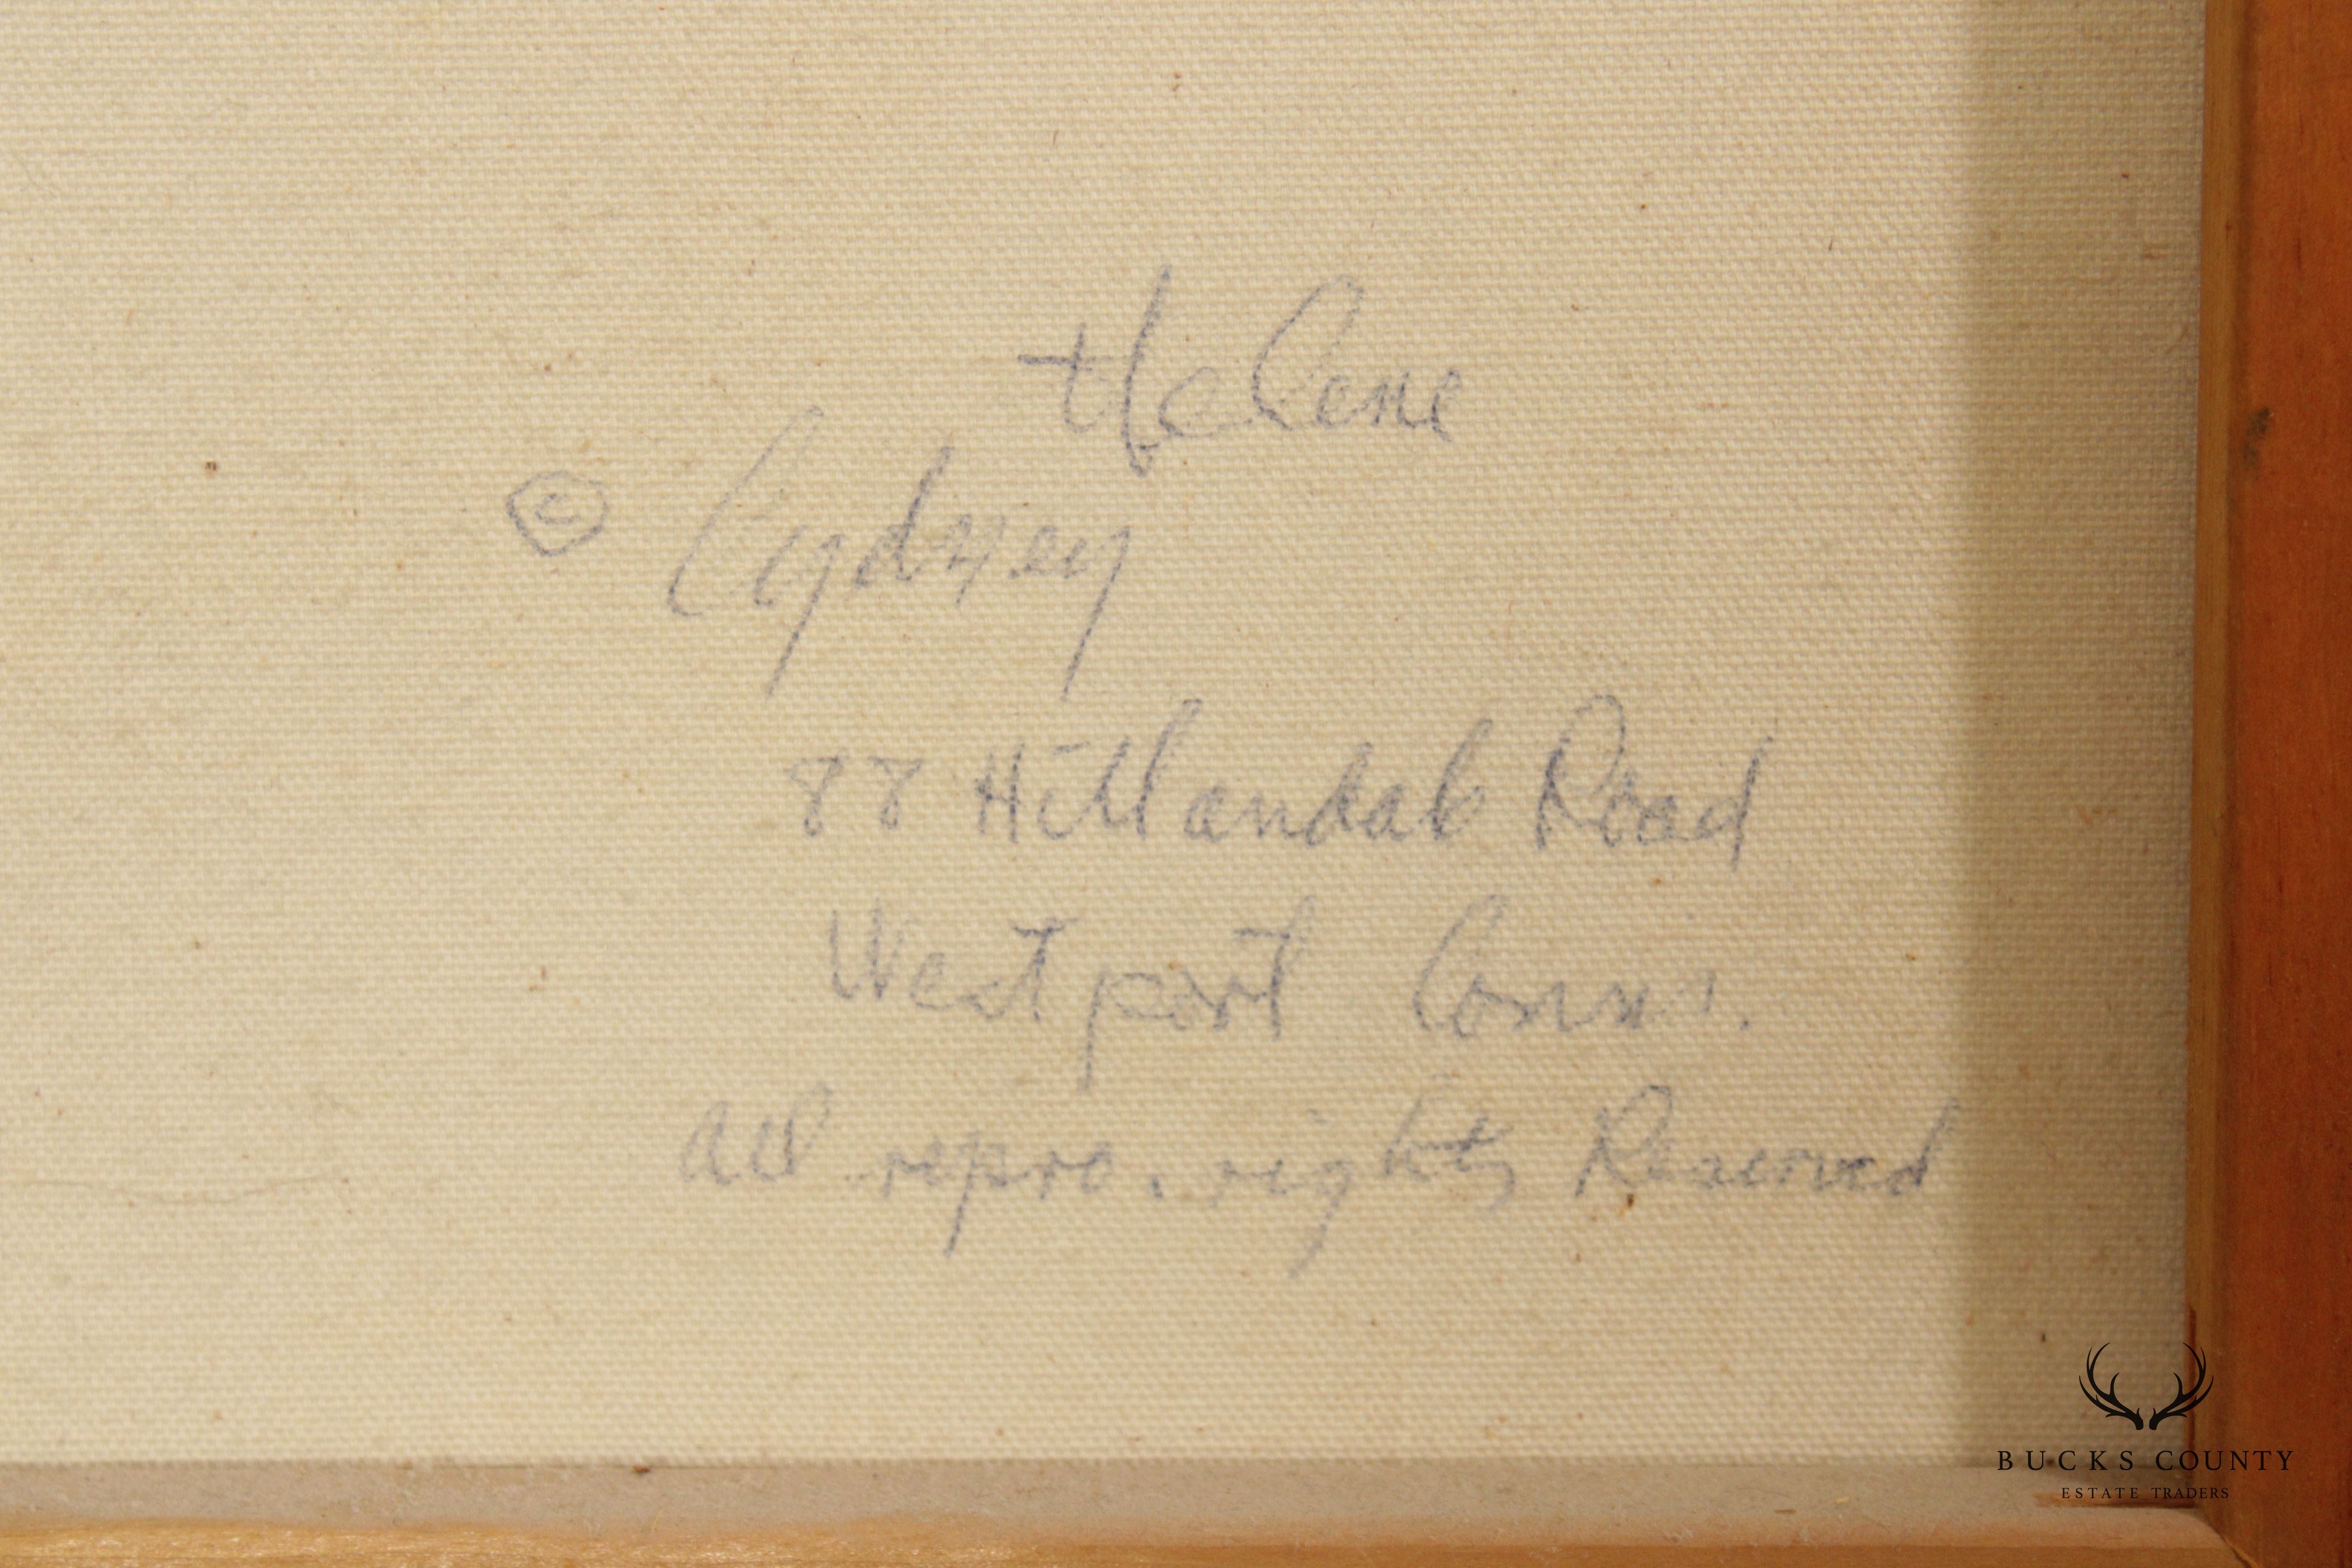 Helene
© Cydney
88 Hillandale Road
Westport Conn.
all repro. rights Reserved
BUCKS COUNTY
ESTATE TRADERS